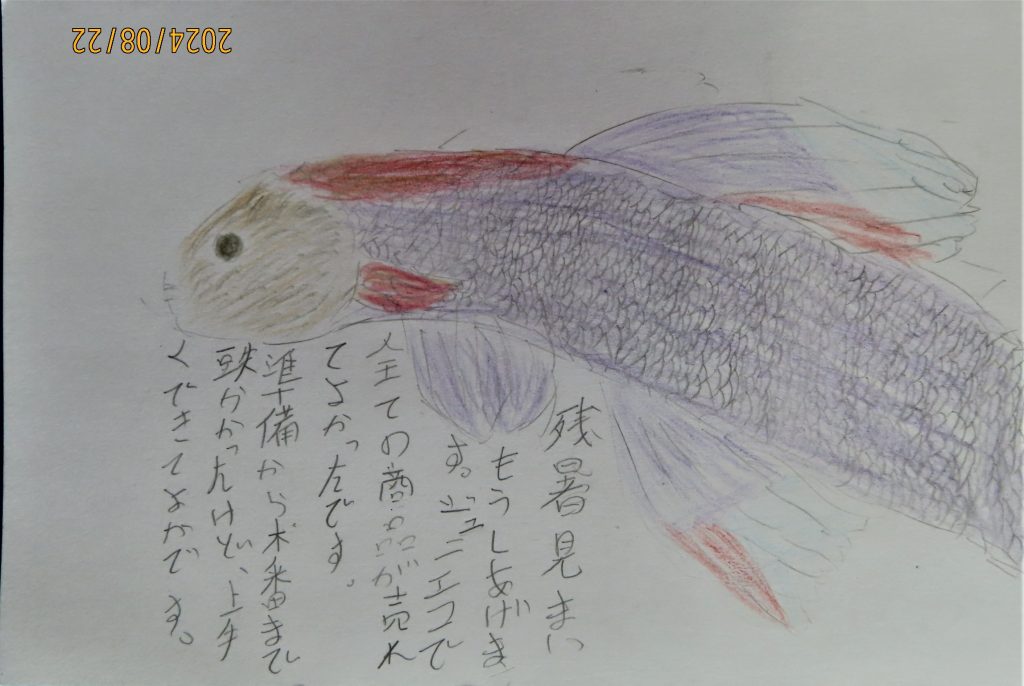 残暑見まい
もうしあげま
す。ジュニエコで
全ての商品が売れ
てよかったです。
準備から本番まで
かかったけど、上手
くできてよかです。
2024/08/22